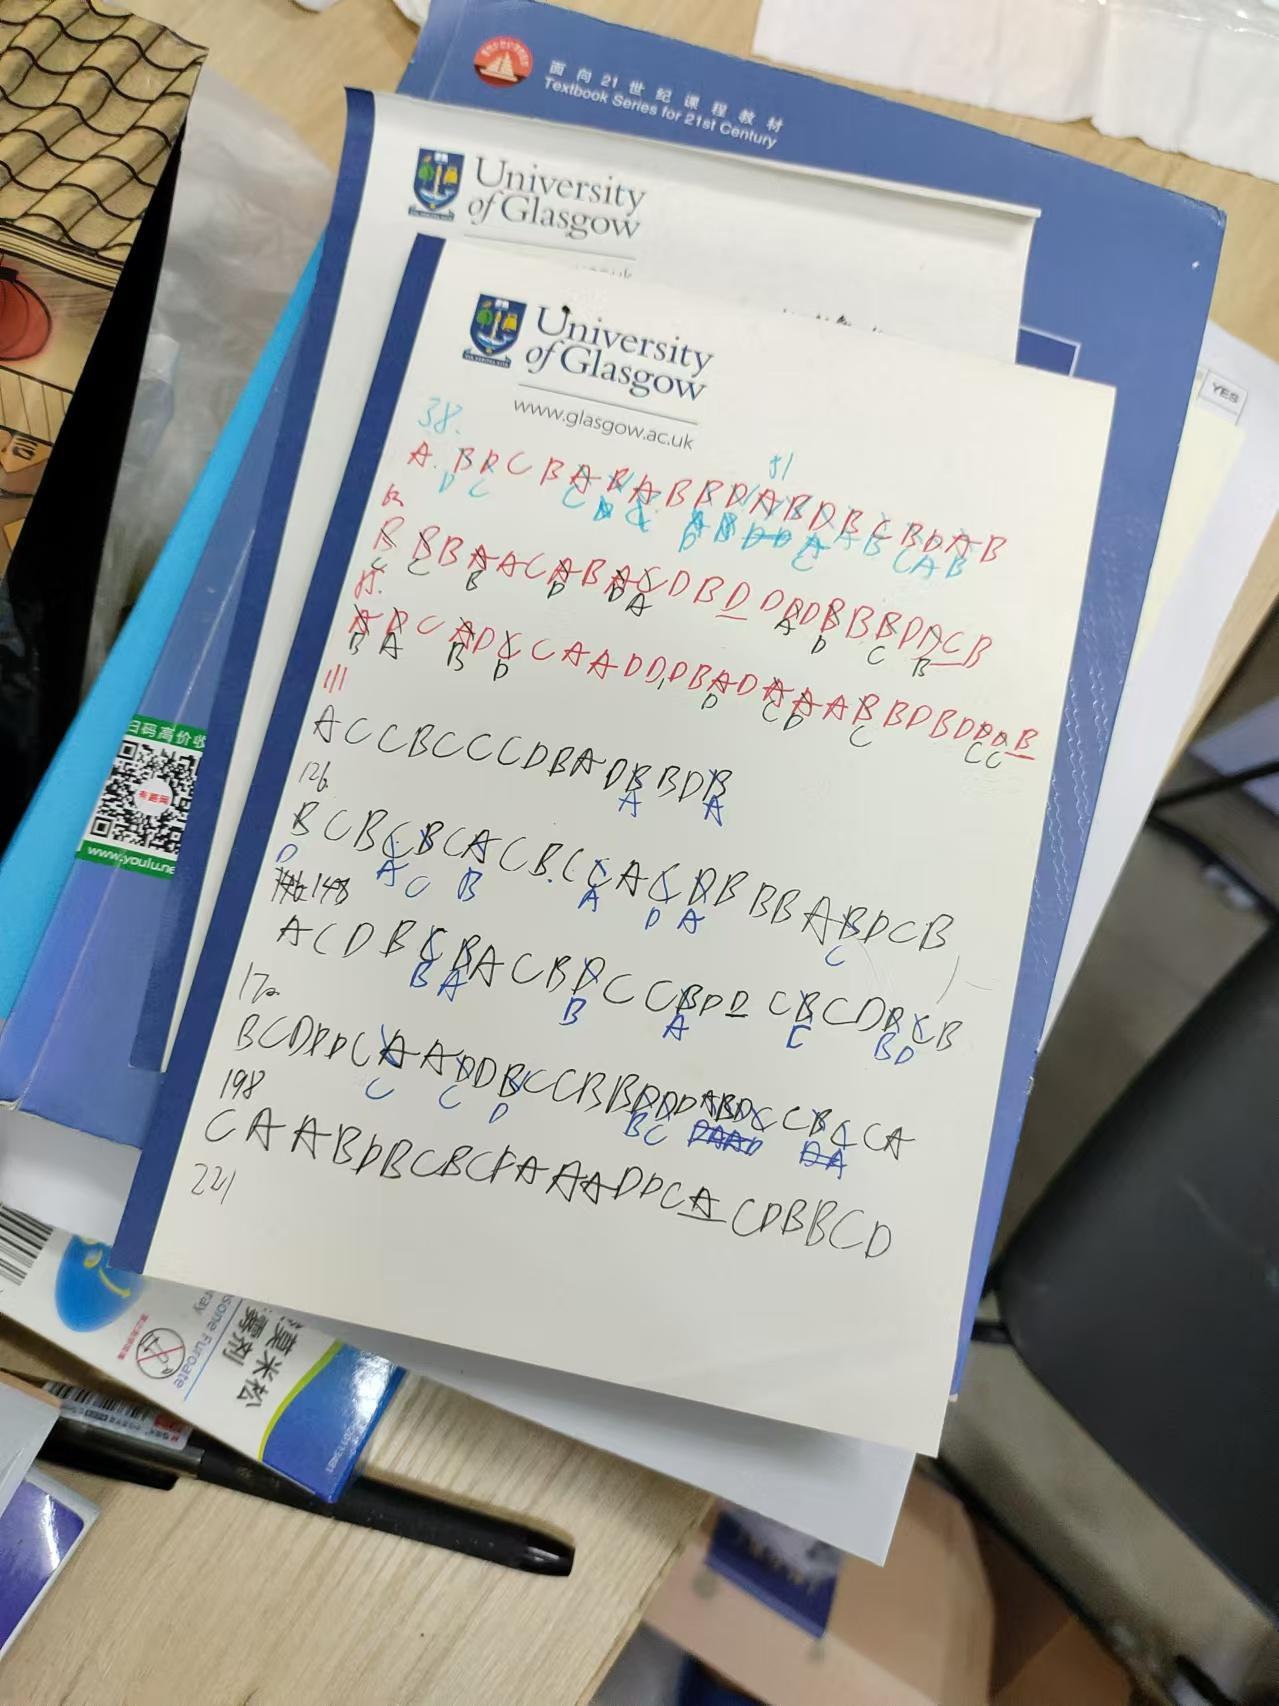 面向21世纪课程教材
Textbook Series for 21st Century
University
of Glasgow
University
of Glasgow
www.glasgow.ac.uk
YES
38.
51
A. B D C B A B A B B D A B D B C B D A B
B B B A A C A B A C D B D D A D B B B D A C B
85.
A D C A D C C A A D D D B A D A A A B B D B D D D B
111
A C C B C C C D B A D B B D B
A A
126
B C B C B C A C B. C C A C D B B B A B D C B
D A C B A D A C
148
A C D B C B A C B D C C B D D C B C D B C B
B A B A C B D
172
B C D D D C A A D D B C C B B D D D A B D C C B C C A
C C D B C
198
C A A B D B C B C D A A A D D C A C D B B C D
221
扫码高价收
www.youlu.ne
莫米松
雾剂